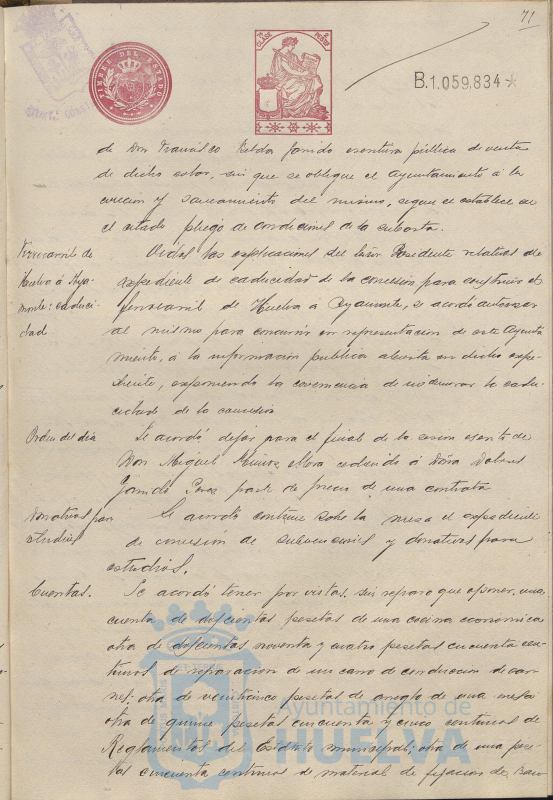 71
TIMBRE DEL ESTADO
B.1.059,834*
de Don Francisco escritura pública de venta
de dicho solar, sin que se obligue el Ayuntamiento á la
evicción y saneamiento del mismo, segun el establece en
el citado pliego de condiciones de la subasta.
Ferrocarril de
Huelva á Ayamonte: caducidad
Oidas las explicaciones del Señor Presidente relativas al
expediente de caducidad de la concesion para construir el
ferrocarril de Huelva a Ayamonte, se acordó autorizar
al mismo para concurrir en representacion de este Ayunta
miento, á la informacion publica abierta en dicho expe-
diente, exponiendo la conveniencia de no demorar la cadu-
cidad de la concesion
Orden del dia
Se acordó dejar para el final de la sesion escrito de
Don Miguel Mora cediendo á Doña Dolores
Garrido Perez parte de precio de una contrata
Donativos para
estudios
Se acordó continue sobre la mesa el expediente
de concesion de subvenciones y donativos para
estudios.
Cuentas.
Se acordó tener por vistas, sin reparo que oponer, una
cuenta de doscientas pesetas de una cocina economica
otra de doscientas noventa y cuatro pesetas cincuenta cen-
timos de reparacion de un carro de conduccion de car-
nes: otra de veinticinco pesetas de arreglo de una mesa
otra de quince pesetas cincuenta y cinco centimos de
Reglamentos del Estatuto municipal; otra de una pese-
tas cincuenta centimos de material de fijacion de
Ayuntamiento de
HUELVA